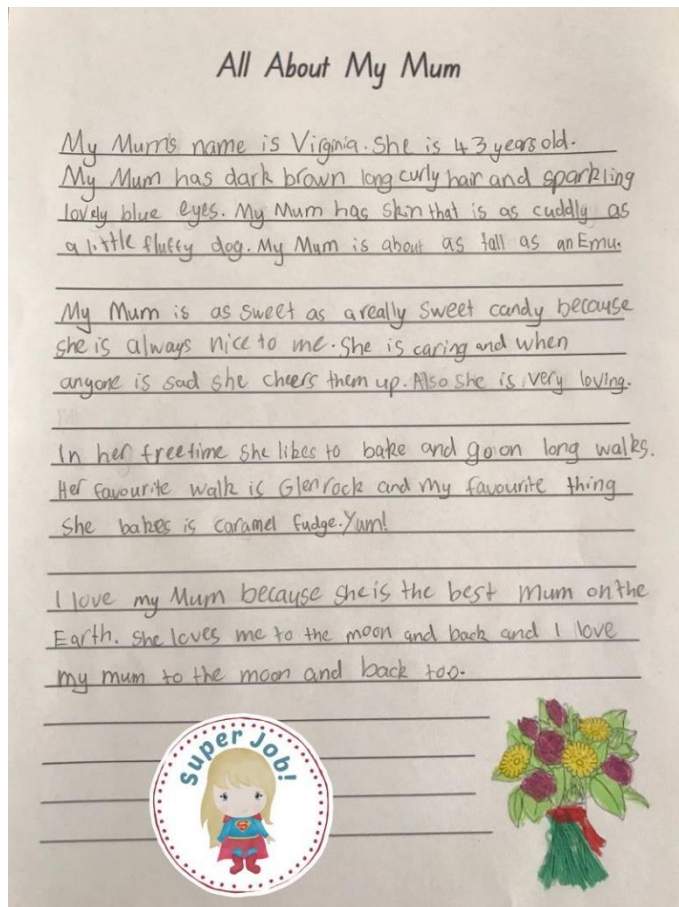 All About My Mum
My Mum's name is Virginia. She is 43 years old.
My Mum has dark brown long curly hair and sparkling
lovely blue eyes. My Mum has skin that is as cuddly as
a little fluffy dog. My Mum is about as tall as an Emu.
My Mum is as sweet as a really sweet candy because
she is always nice to me. She is caring and when
anyone is sad she cheers them up. Also she is very loving.
In her freetime she likes to bake and go on long walks.
Her favourite walk is Glenrock and my favourite thing
she bakes is caramel fudge. Yum!
I love my Mum because she is the best mum on the
Earth. She loves me to the moon and back and I love
my mum to the moon and back too.
Super Job!